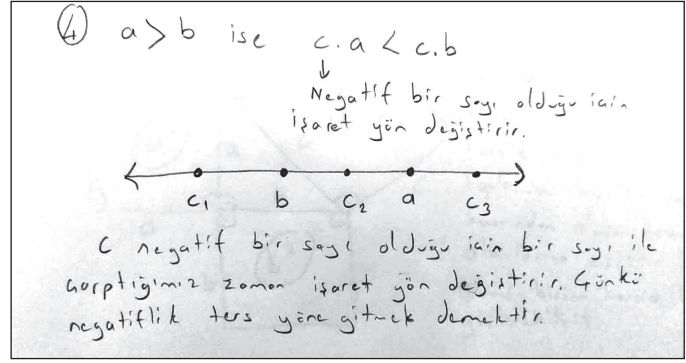 ④ a > b ise c.a < c.b
↓
Negatif bir sayı olduğu için
işaret yön değiştirir.
c₁ b c₂ a c₃
C negatif bir sayı olduğu için bir sayı ile
çarptığımız zaman işaret yön değiştirir. Çünkü
negatiflik ters yöne gitmek demektir.